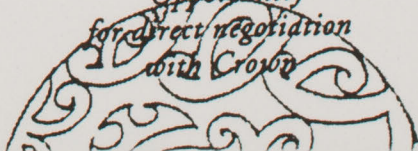 for direct negotiation
with Crown